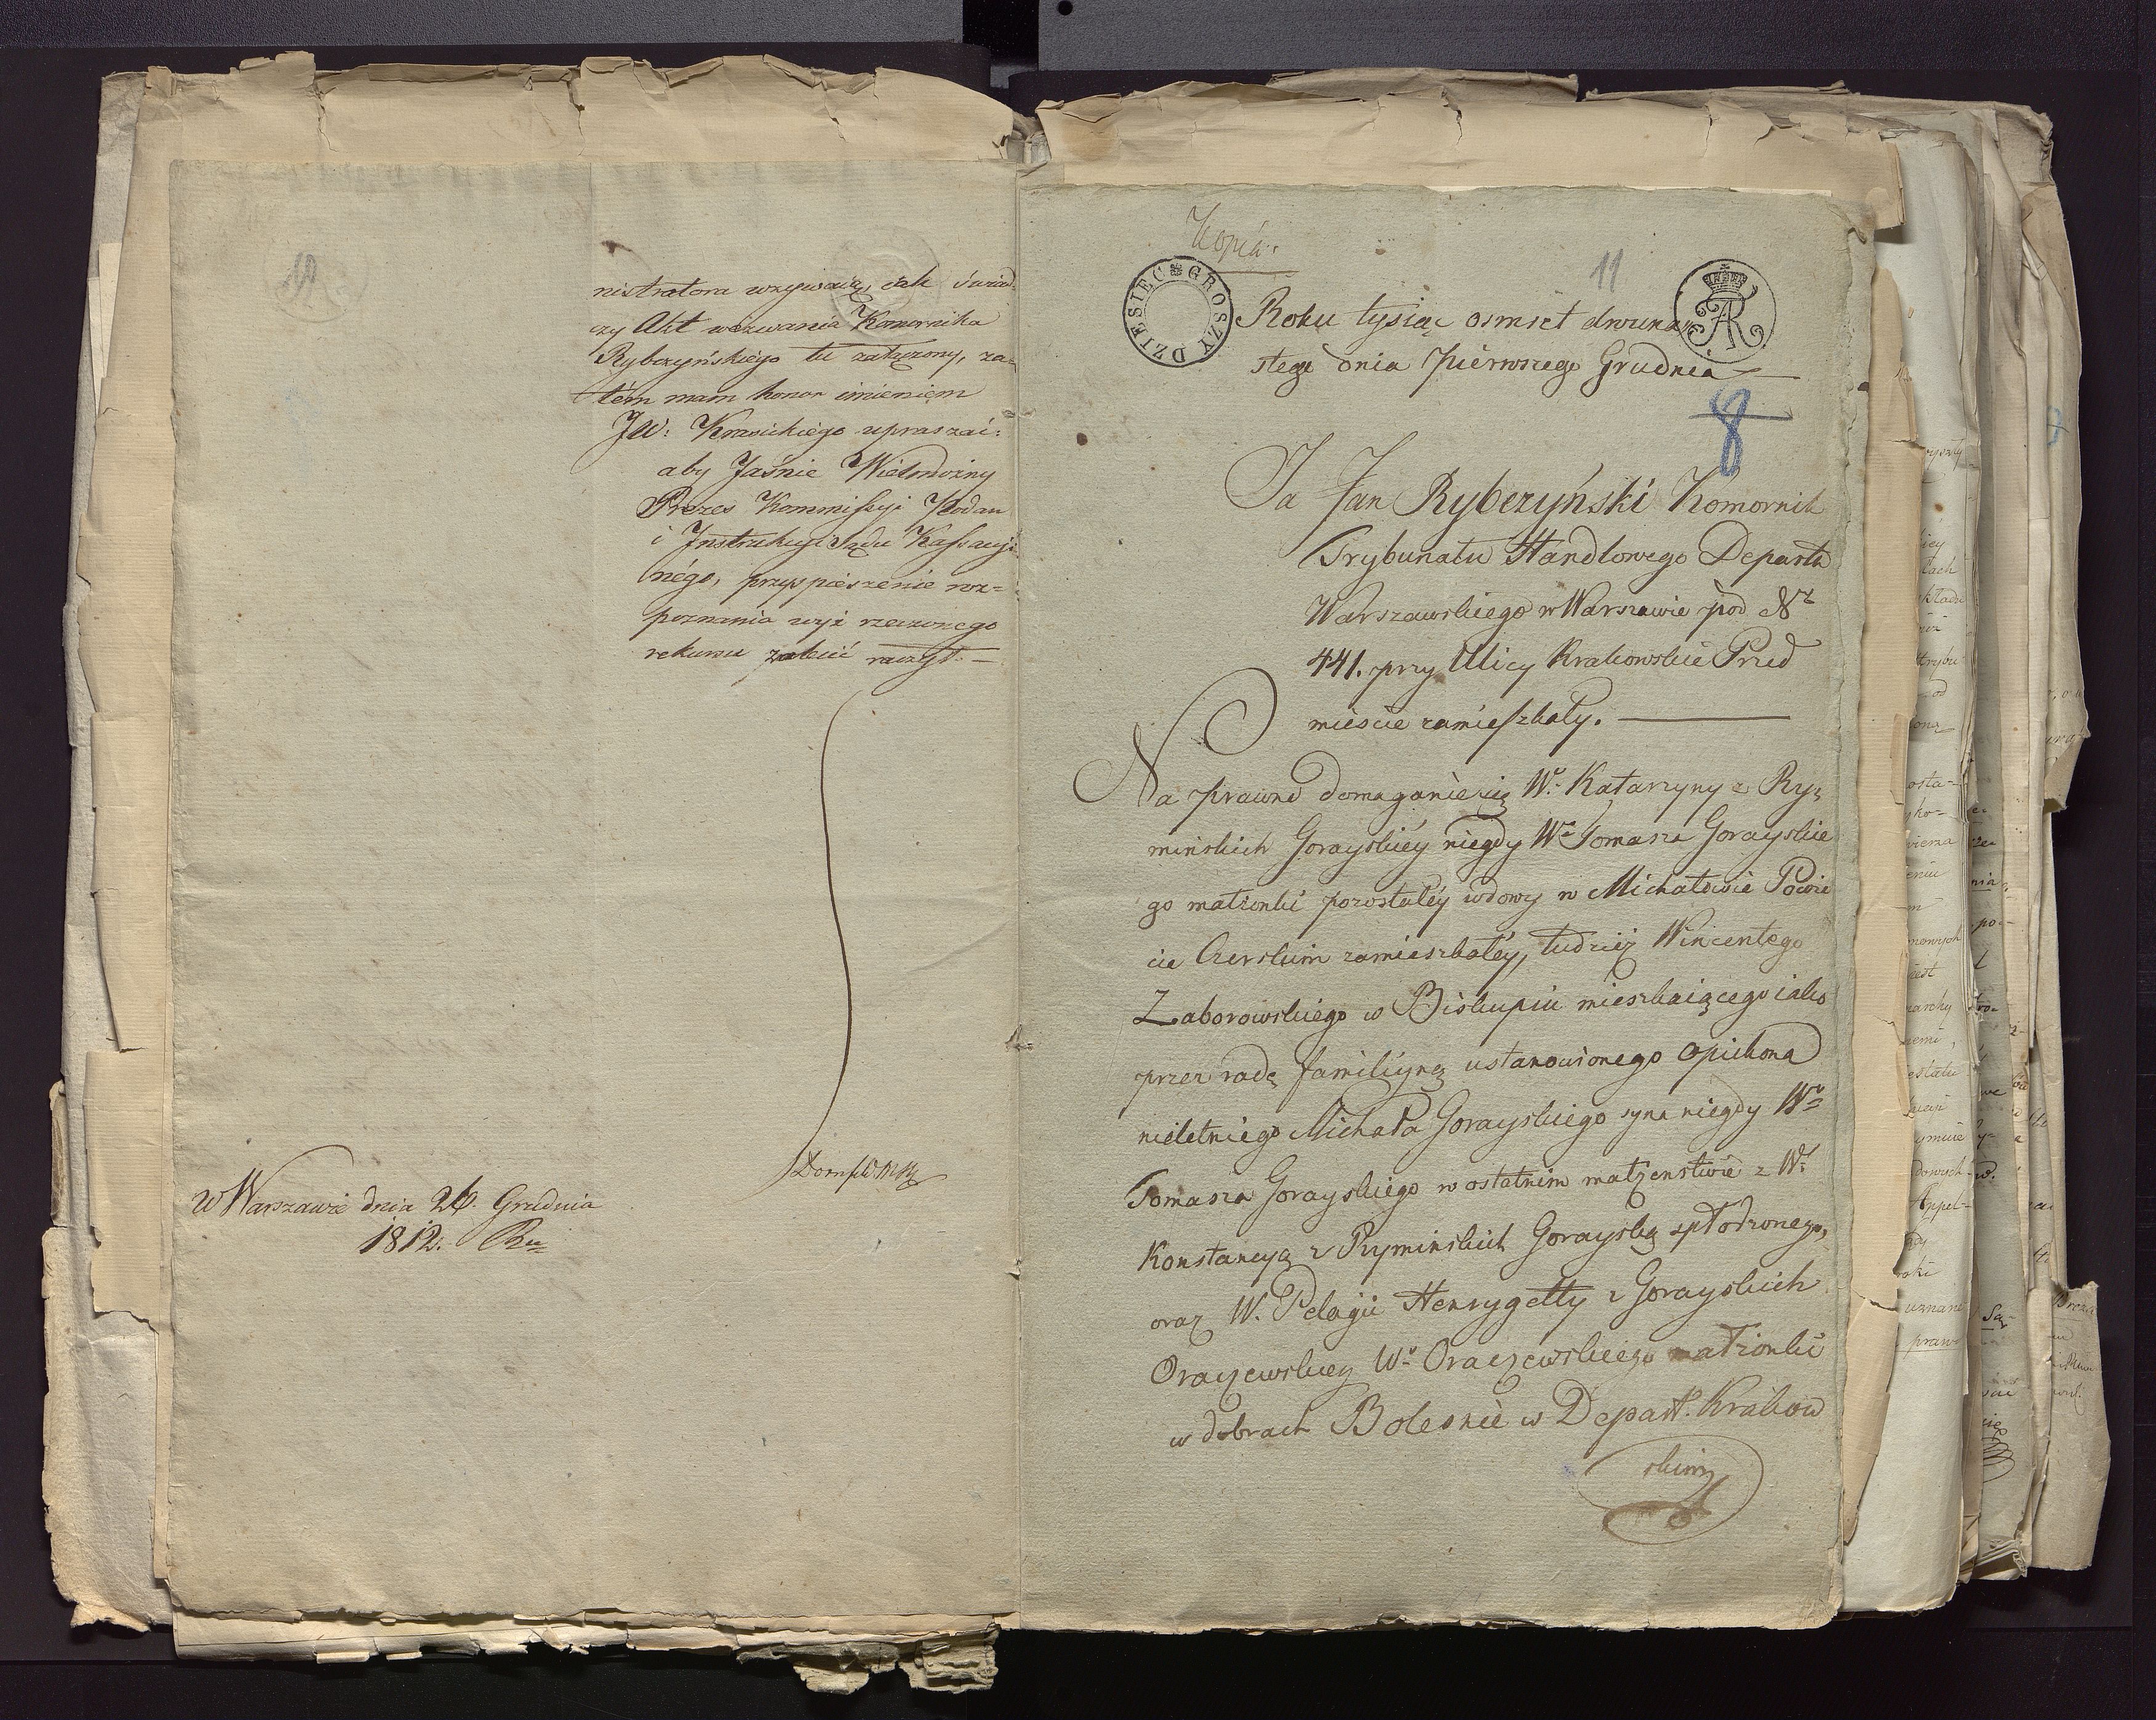 nistratora wzywaią, iak świad-
czy Akt wezwania Komornika
Rybczyńskiego tu załączony, za-
tém mam honor imieniem
JW: Krasickiego upraszać:
aby Jaśnie Wielmożny
Prezes Kommissyi Podań
i Instrukcyi Sądu Kassacyi-
négo, przyspieszenie roz=
poznania wyż rzeczonego
rekursu zalecić raczył. —
w Warszawie dnia 26. Grudnia
1812. Ru
Kopia.
11
DZIESIĘC GROSZY
Roku tysiąc osmset dwuna
stego dnia Pierwszego Grudnia
8
Ja Jan Rybczyński Komornik
Trybunału Handlowego Departa
Warszawskiego w Warszawie pod Nr
441. przy Ulicy Krakowskie Przed
mieście zamieszkały.
Na prawne domaganie się Wr. Katarzyny z Ry,
mińskich Gorayskiéy niegdy Wo Tomasza Gorayskie
go małżonki pozostałéy wdowy w Michałowie Powie
cie Czerskim zamieszkałéy, tudzież Wincentego
Zaborowskiego w Biskupiu mieszkaiącego iako
przez radę familiyną ustanowionego opiekona
nieletniego Michała Gorayskiego syna niegdy Wo
Tomasza Gorayskiego w ostatnim małżenstwie z Wą
Konstancyą z Rymińskich Gorayską spłodzonego,
oraz W. Pelagii Henrygetty z Gorayskich
Oraczewskiey Wo Oraczewskiego małżonki
w dobrach Bolesnie w Depart. Krakow
skim